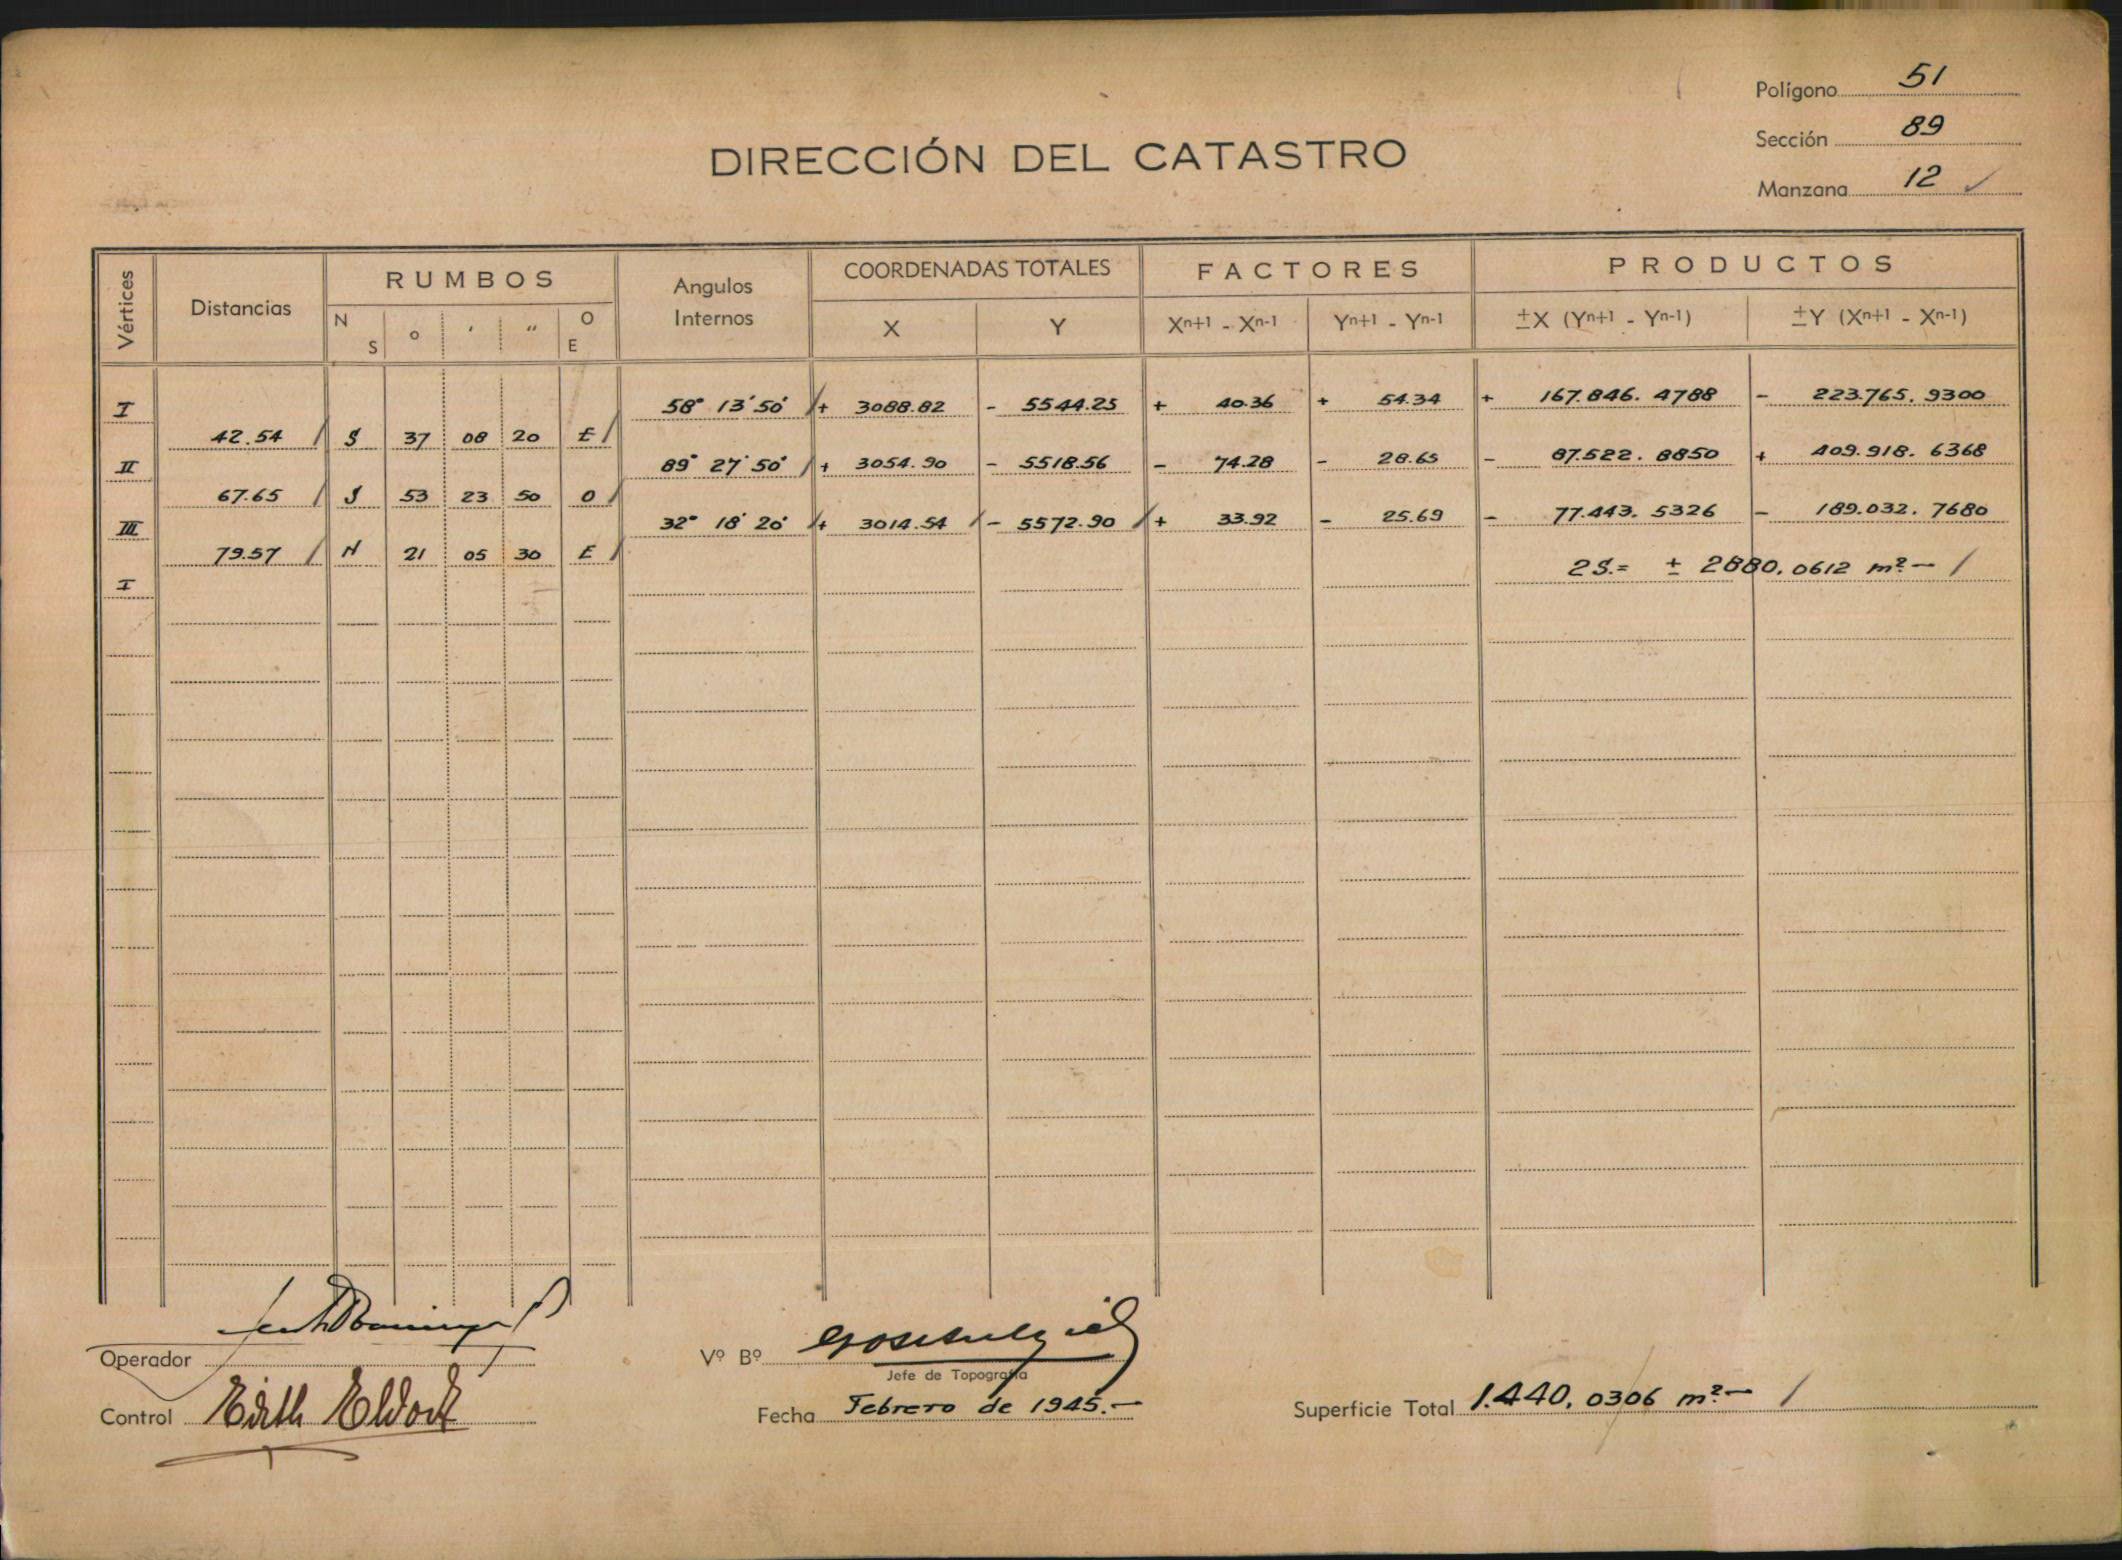 Polígono 51
Sección 89
Manzana 12 ✓
DIRECCIÓN DEL CATASTRO
Vértices Distancias RUMBOS Angulos Internos COORDENADAS TOTALES FACTORES PRODUCTOS
N S o ' " O E X Y Xn+1 - Xn-1 Yn+1 - Yn-1 ±X (Yn+1 - Yn-1) ±Y (Xn+1 - Xn-1)
I 58° 13' 50" + 3088.82 - 5544.25 + 40.36 + 54.34 + 167.846.4788 - 223.765.9300
42.54 S 37 08 20 E
II 89° 27' 50" + 3054.90 - 5518.56 - 74.28 - 28.65 - 87.522.8850 + 409.918.6368
67.65 S 53 23 50 O
III 32° 18' 20" + 3014.54 - 5572.90 + 33.92 - 25.69 - 77.443.5326 - 189.032.7680
79.57 N 21 05 30 E
2S.= ± 2880,0612 m².-
I
Operador
Vº Bº
Jefe de Topografía
Control
Fecha Febrero de 1945.-
Superficie Total 1.440,0306 m².-